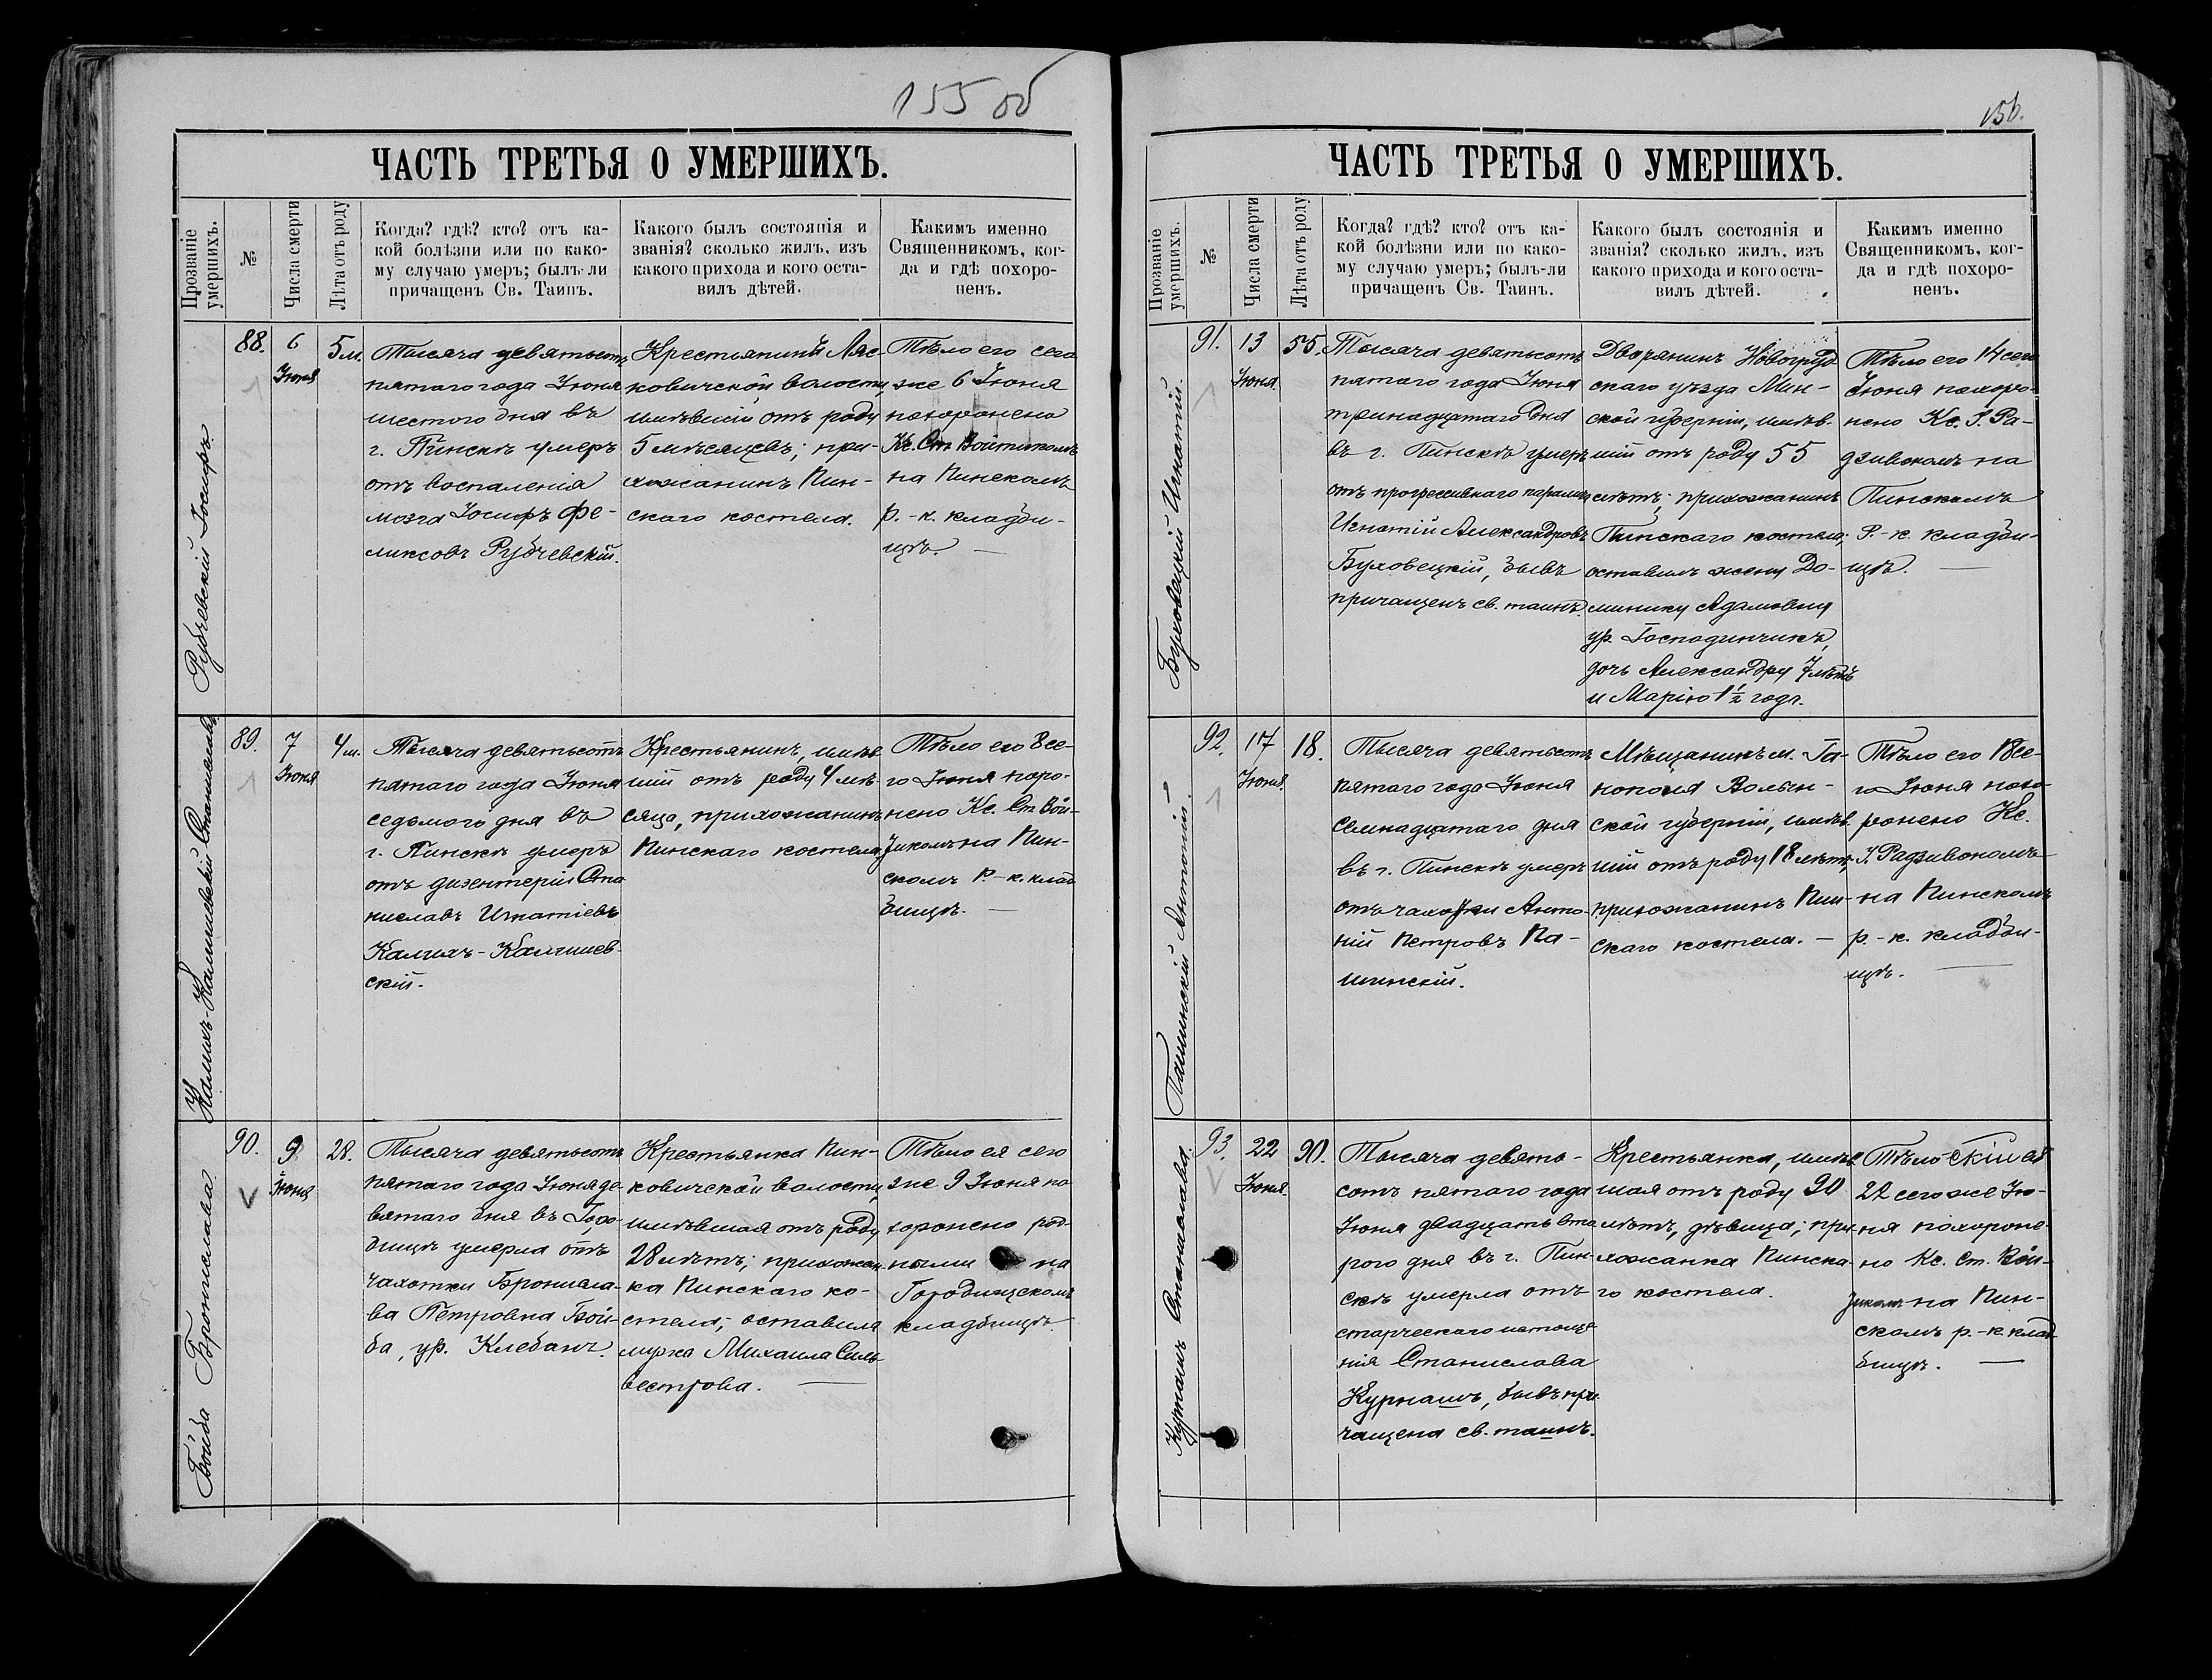 155 об
ЧАСТЬ ТРЕТЬЯ О УМЕРШИХЪ.
Прозваніе умершихъ.
№
Числа смерти
Лѣта отъ роду
Когда? гдѣ? кто? отъ ка-
кой болѣзни или по како-
му случаю умеръ; былъ-ли
причащенъ Св. Таинъ.
Какого былъ состоянія и
званія? сколько жилъ, изъ
какого прихода и кого оста-
вилъ дѣтей.
Какимъ именно
Священникомъ, ког-
да и гдѣ похоро-
ненъ.
Рубчевскій Іосифъ.
88.
6
Іюня
5 м.
Тысяча девятьсотъ
пятаго года Іюня
шестого дня въ
г. Пинскѣ умеръ
отъ воспаленія
мозга Іосифъ Фе-
ликсовъ Рубчевскій.
Крестьянинъ Ляс-
ковичской волости,
имѣвшій отъ роду
5 мѣсяцевъ; при-
хожанинъ Пин-
скаго костела.
Тѣло его сего
же 6 Іюня
похоронено
Кс. Ст. Войтикомъ
на Пинскомъ
р.-к. кладби-
щѣ. —
Калихъ-Калишевскій Станиславъ
89.
7
Іюня
4 м.
Тысяча девятьсотъ
пятаго года Іюня
седьмого дня въ
г. Пинскѣ умеръ
отъ дизентеріи Ста
ниславъ Игнатіевъ
Калихъ-Калишев-
скій.
Крестьянинъ, имѣв
шій отъ роду 4 мѣ-
сяца, прихожанинъ
Пинскаго костела,
Тѣло его 8 се-
го Іюня поро-
нено Кс. Ст. Вой-
зикомъ на Пин-
скомъ р.-к. клад
бищѣ. —
Бойба Бронислава
90.
9
Іюня
28.
Тысяча девятьсотъ
пятаго года Іюня де-
вятаго дня въ Горо-
дищѣ умерла отъ
чахотки Бронисла-
ва Петровна Бой-
ба, ур. Клебанъ.
Крестьянка Пин-
ковичской волости,
имѣвшая отъ роду
28 лѣтъ; прихожан-
ка Пинскаго ко-
стела; оставила
мужа Михаила Силь-
вестрова. —
Тѣло ея сего
же 9 Іюня по
хоронено род-
ными на
Городищскомъ
кладбищѣ.
156.
ЧАСТЬ ТРЕТЬЯ О УМЕРШИХЪ.
Прозваніе умершихъ.
№
Числа смерти
Лѣта отъ роду
Когда? гдѣ? кто? отъ ка-
кой болѣзни или по како-
му случаю умеръ; былъ-ли
причащенъ Св. Таинъ.
Какого былъ состоянія и
званія? сколько жилъ, изъ
какого прихода и кого оста-
вилъ дѣтей.
Какимъ именно
Священникомъ, ког-
да и гдѣ похоро-
ненъ.
Буховецкій Игнатій.
91.
13
Іюня
55.
Тысяча девятьсотъ
пятаго года Іюня
тринадцатаго дня
въ г. Пинскѣ умеръ
отъ прогрессивнаго паралича
Игнатій Александровъ
Буховецкій, бывъ
причащенъ св. таинъ.
Дворянинъ Новогруд-
скаго уѣзда Мин-
ской губерніи, имѣв-
шій отъ роду 55
лѣтъ; прихожанинъ
Пинскаго костела;
оставилъ жену До-
минику Адамовну
ур. Господинчикъ,
дочь Александру 7 лѣтъ
и Марію 1½ года.
Тѣло его 14 сего
Іюня похоро-
нено Кс. І. Ра-
дзивономъ на
Пинскомъ
Р.-к. кладби-
щѣ. —
Пашинскій Антоній.
92.
17
Іюня.
18.
Тысяча девятьсотъ
пятаго года Іюня
семнадцатаго дня
въ г. Пинскѣ умеръ
отъ чахотки Анто-
ній Петровъ Па-
шинскій.
Мѣщанинъ м. Га-
нополя Волын-
ской губерніи, имѣв-
шій отъ роду 18 лѣтъ,
прихожанинъ Пин-
скаго костела. —
Тѣло его 18 се-
го Іюня похо-
ронено Кс.
І. Радзивономъ
на Пинскомъ
р.-к. кладби-
щѣ. —
Курнашъ Станислава.
93.
22
Іюня.
90.
Тысяча девять-
сотъ пятаго года
Іюня двадцать вто
рого дня въ г. Пин-
скѣ умерла отъ
старческаго истоще
нія Станислава
Курнашъ, бывъ при
чащена св. таинъ.
Крестьянка, имѣв-
шая отъ роду 90
лѣтъ, дѣвица; при-
хожанка Пинска-
го костела.
Тѣло
22 сего же Ію-
ня похороне-
но Кс. Ст. Вой-
зикомъ на Пин-
скомъ р.-к. клад
бищѣ. —